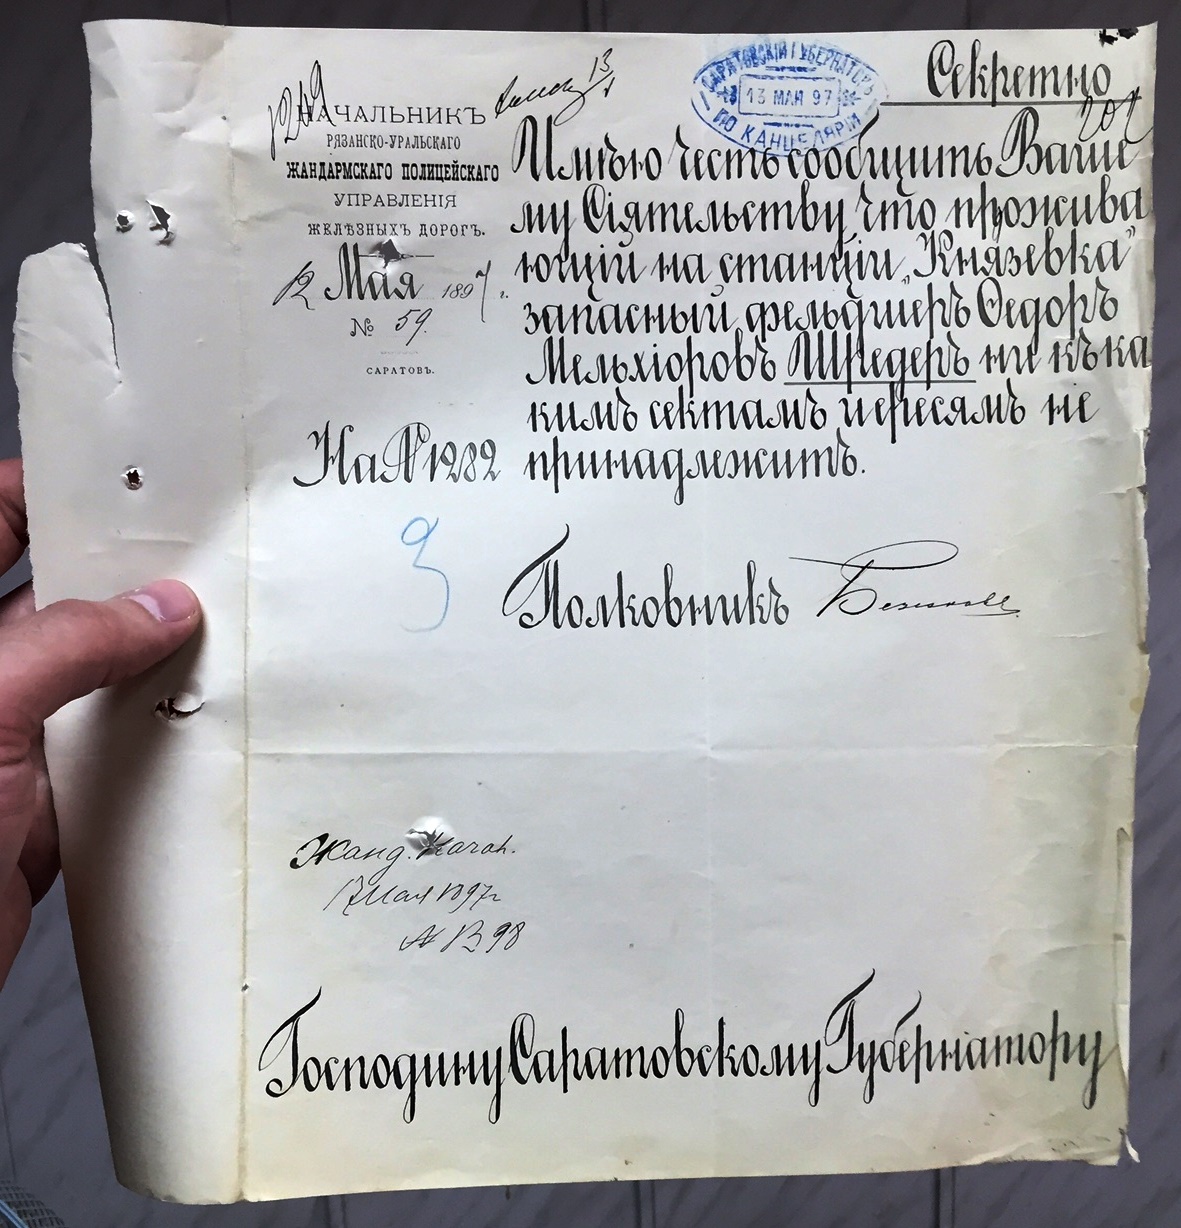 Секретно
202
САРАТОВСКІЙ ГУБЕРНАТОРЪ
13 МАЯ 97
ПО КАНЦЕЛЯРІИ
НАЧАЛЬНИКЪ
РЯЗАНСКО-УРАЛЬСКАГО
ЖАНДАРМСКАГО ПОЛИЦЕЙСКАГО
УПРАВЛЕНІЯ
ЖЕЛѢЗНЫХЪ ДОРОГЪ.
12 Мая 1897 г.
№ 59.
САРАТОВЪ.
На № 1282
Имѣю честь сообщить Ваше
му Сіятельству, что прожива
ющій на станціи „Князевка"
запасный фельдшеръ Ѳедоръ
Мельхіоровъ Шредеръ ни къ ка
кимъ сектамъ и ересямъ не
принадлежитъ.
Полковникъ
Жанд. Начал.
17 Мая 1897 г
№ 1398
Господину Саратовскому Губернатору